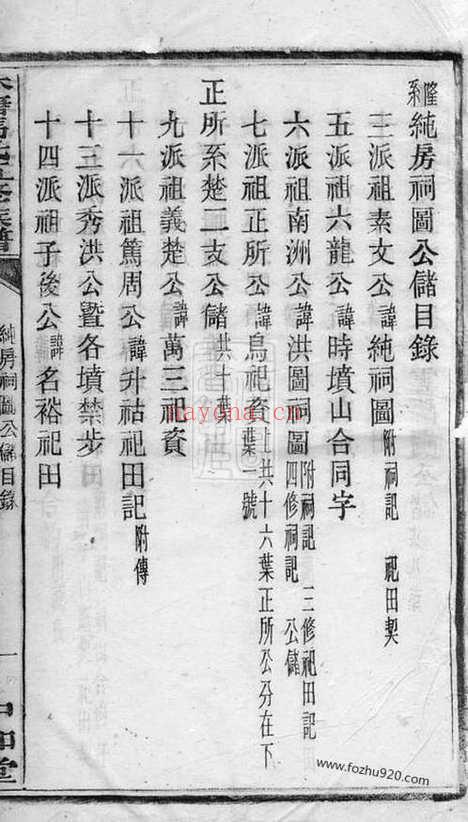 隆系純房祠圖公儲目錄
三派祖素文公諱純祠圖附祠記 祀田契
五派祖六龍公諱時墳山合同字
六派祖南洲公諱洪圖祠圖附祠記 三修祀田記 四修祠記 公儲
七派祖正所公諱鳥祀資上共十六葉正所公分在下葉一號
正所系楚二支公儲共十葉
九派祖義楚公諱萬三祖資
十一派祖篤周公諱升祜祀田記附傳
十三派秀洪公暨各墳禁步
十四派祖子後公諱名裕祀田
純房祠圖公儲目錄
一
中和堂
nayona.cn
www.fozhu920.com